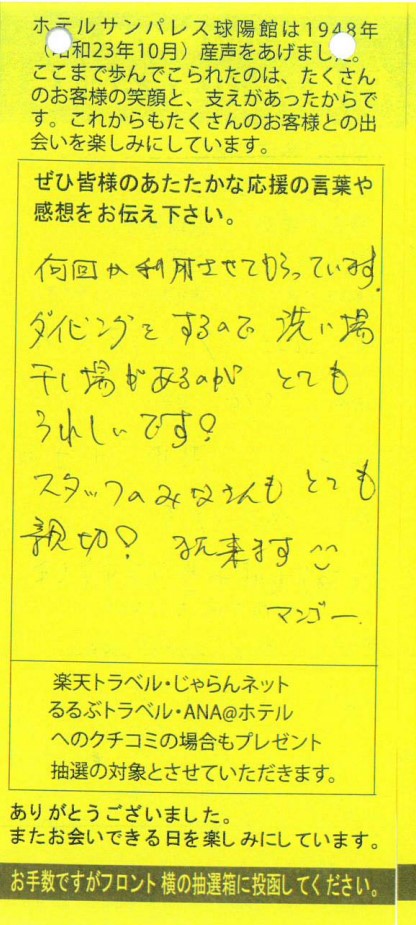 ホテルサンパレス球陽館は1948年
（昭和23年10月）産声をあげました。
ここまで歩んでこられたのは、たくさん
のお客様の笑顔と、支えがあったからで
す。これからもたくさんのお客様との出
会いを楽しみにしています。
ぜひ皆様のあたたかな応援の言葉や
感想をお伝え下さい。
何回か利用させてもらっています。
ダイビングをするので 洗い場
干し場があるのが とても
うれしいです！
スタッフのみなさんも とても
親切！ また来ます
マンゴー
楽天トラベル・じゃらんネット
るるぶトラベル・ANA@ホテル
へのクチコミの場合もプレゼント
抽選の対象とさせていただきます。
ありがとうございました。
またお会いできる日を楽しみにしています。
お手数ですがフロント横の抽選箱に投函してください。